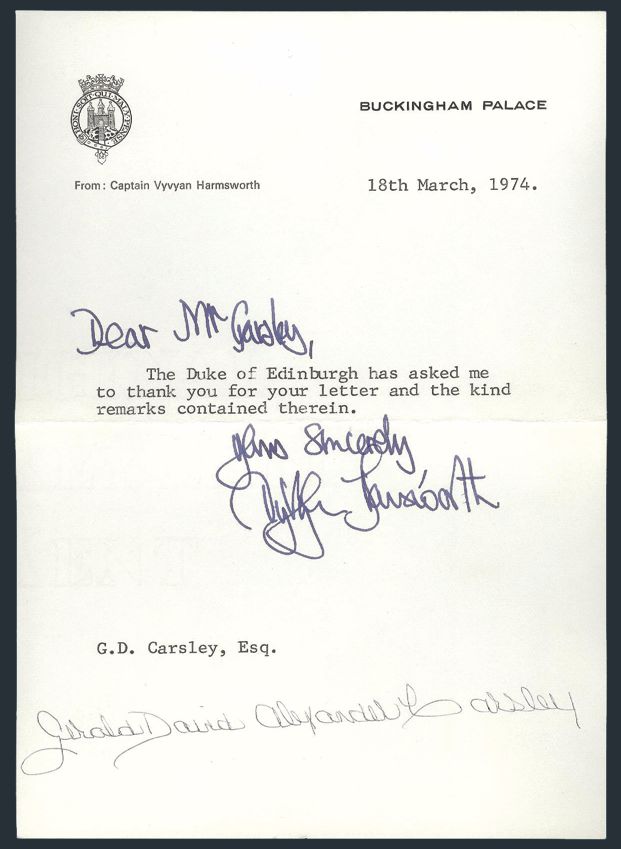 HONI·SOIT·QUI·MAL·Y·PENSE
BUCKINGHAM PALACE
From: Captain Vyvyan Harmsworth
18th March, 1974.
Dear Mr Carsley,
The Duke of Edinburgh has asked me
to thank you for your letter and the kind
remarks contained therein.
Yours Sincerely
Vyvyan Harmsworth
G.D. Carsley, Esq.
Gerald David Alexander Carsley